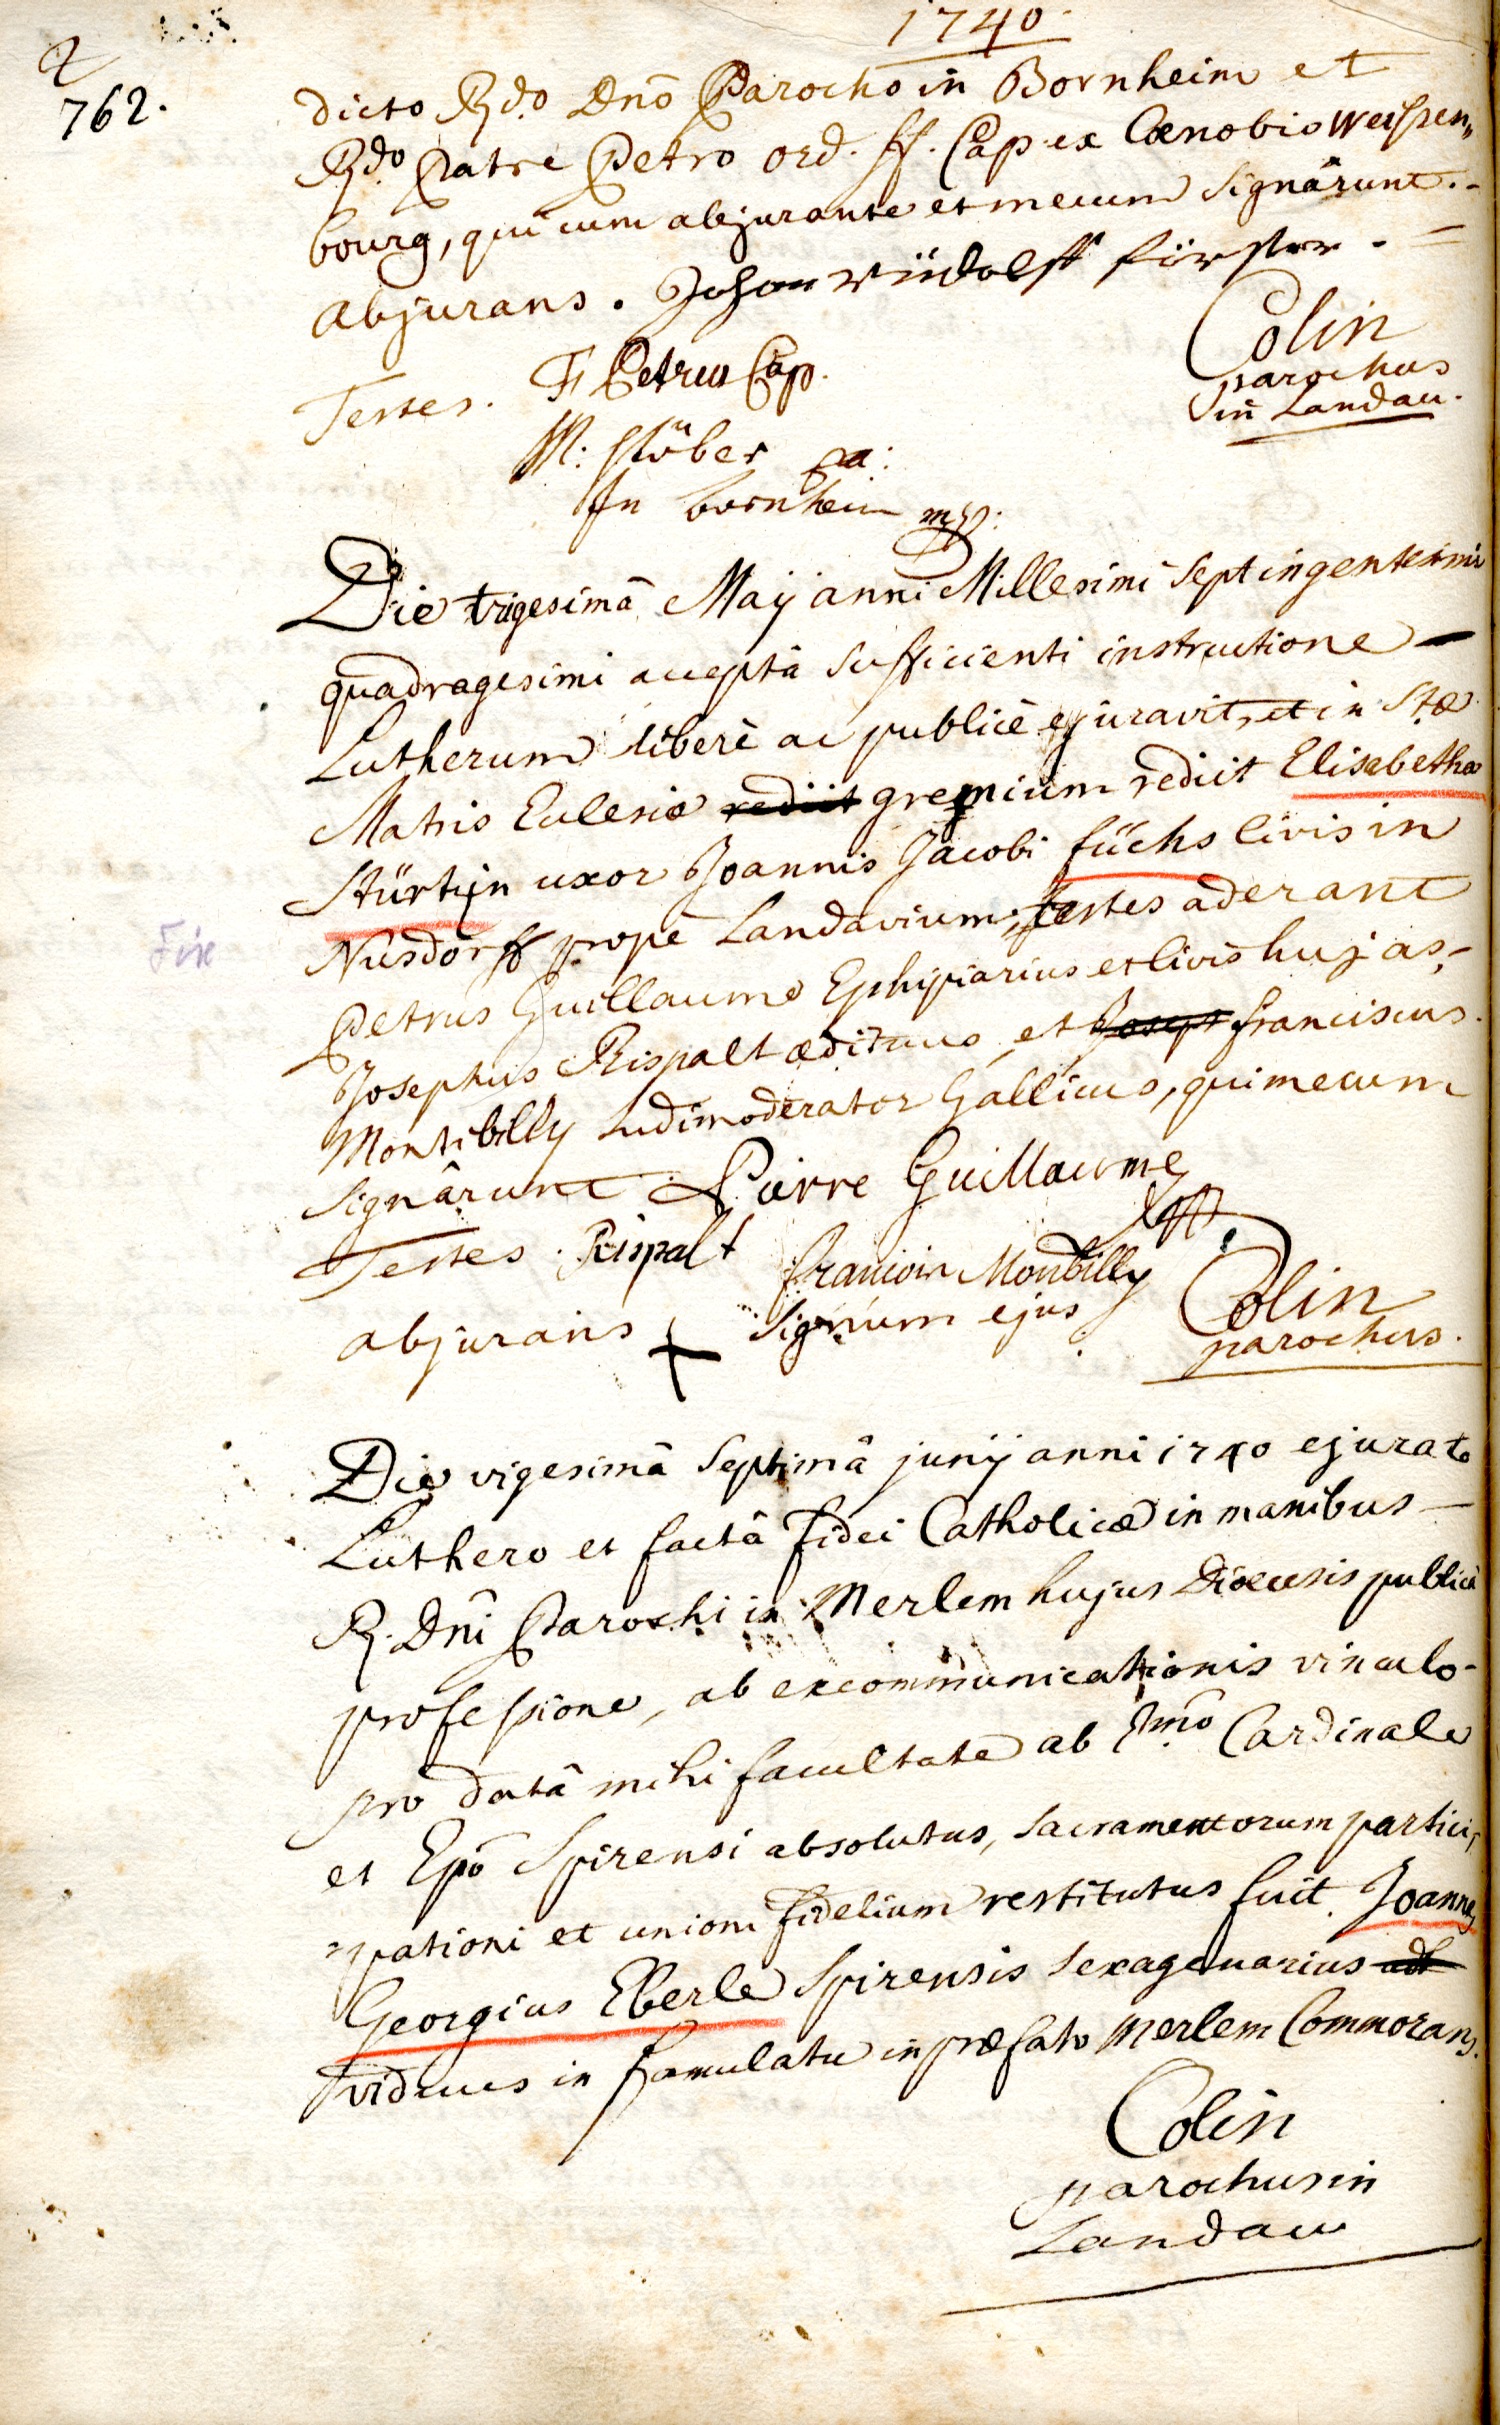 1740.
2
762.
dicto Rdo Dno Parocho in Bornheim et
Rdo Patre Petro ord. ff. Cap. ex Cœnobio Weissen,,
bourg, qui cum abjurante et mecum signârunt.-
abjurans. Johan Rüdolff förster.
Colin
parochus
in Landau.
Testes. F Petrus Cap.
M: Stöber pa:
In bornheim mp:
Die trigesimâ Maij anni Millesimi septingentesimi
quadragesimi acceptâ sufficienti instructione
Lutherum liberè ac publicè ejuravit, et in Stæ
Matris Eclesiæ rediit gremium rediit Elisabetha
Stürtzin uxor Joannis Jacobi füchs Civis in
Nusdorff propè Landavium, testes aderant
Petrus Guillaume Ephipiarius et Civis hujas,-
Josephus Rispalt ædituus, et Joseph franciscus
Montibilly Ludimoderator Gallicus, qui mecum
signârunt Pierre Guillaume
Testes. Rispalt
francois Monbilly
Colin
parochus.
abjurans + signum ejus
Die vigesimâ Septimâ junij anni 1740 ejurato
Luthero et factâ fidei Catholicæ in manibus
R. Dni Parochi in Merlem hujus Diœcesis publicè
professione, ab excommunicationis vinculo-
pro datâ mihi facultate ab Emo Cardinale
et Epo Spirensi absolutus, sacramentorum partici,
pationi et unioni fidelium restitutus fuit Joannes
Georgius Eberle Spirensis sexagenarius
viduus in famulatu in præfato Merlem Commorans.
Colin
parochus in
Landau